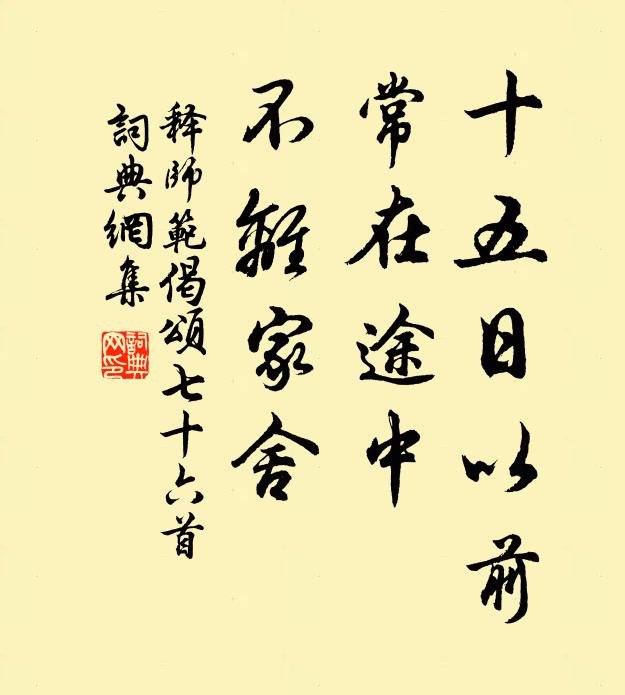 十五日以前
常在途中
不離家舍
释師範偈頌七十六首
詞典網集
詞典网印